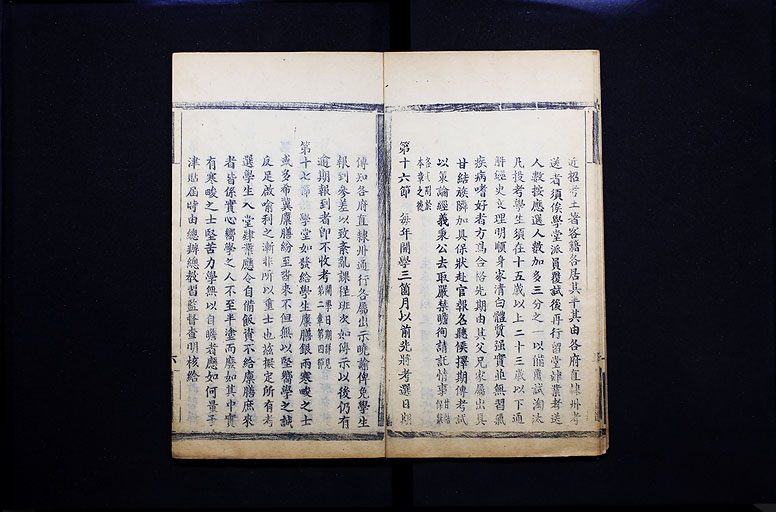 近招考土著客籍各居其半其由各府直隸州考
送者須俟學堂派員覆試後再行留堂肄業考送
人數按應選人數加多三分之一以備覆試淘汰
凡投考學生須在十五歲以上二十三歲以下通
解經史文理明順身家清白體質强實並無習氣
疾病嗜好者方爲合格先期由其父兄家屬出具
甘結族隣加具保狀赴官報名聽候擇期傳考試
以策論經義秉公去取嚴禁瞻徇請託情事甘結保狀
各式列於本章之後
第十六節 每年開學三箇月以前先將考選日期
傳知各府直隸州通行各屬出示曉諭俾免學生
報到參差以致紊亂課程班次如傳示以後仍有
逾期報到者卽不收考開學日期詳見第二章第四節
第十七節 學堂如發給學生廩膳銀兩寒畯之士
或多希冀廩膳紛至沓來不但無以堅嚮學之誠
反足啟喻利之漸非所以重士也茲擬定所有考
選學生入堂肄業應令自備飯資不給廩膳庶來
者皆係實心嚮學之人不至半塗而廢如其中實
有寒畯之士堅苦力學無以自贍者應如何量予
津貼屆時由總辦總教習監督查明核給